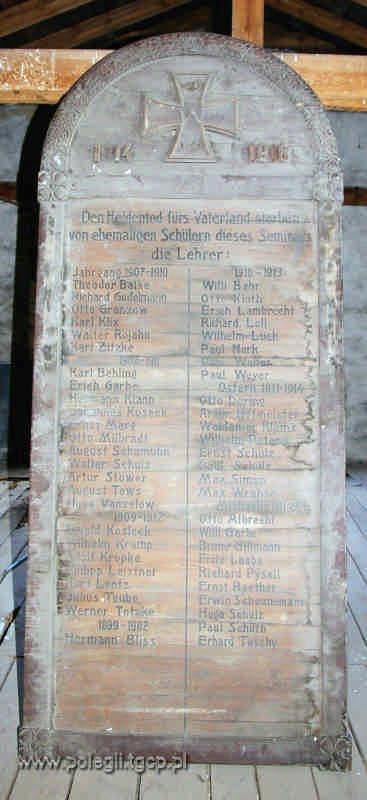 1914 1918
Den Heldentod fürs Vaterland starben
von ehemaligen Schülern dieses Seminars
die Lehrer:
Jahrgang 1907-1910
Theodor Balke
Richard Gudelmann
Otto Granzow
Karl Klix
Walter Rojahn
Karl Zitzke
Karl Behling
Erich Garbe
Hermann Klann
Johannes Kosack
Ernst Marg
Otto Milbradt
August Schumann
Walter Schulz
Artur Stöwer
August Tews
Hugo Vanselow
1909-1912
Arnold Kosleck
Wilhelm Krampe
Adolf Kropke
Leistner
Lentz
Julius Taube
Werner Totzke
1899-1902
Hermann Bliss
1910-1913
Willi Behr
Otto Kloth
Erich Lambrecht
Richard Loll
Wilhelm Lück
Paul Nork
Paul Weyer
Ostern 1911-1914
Otto Döring
Artur Hoffmeister
Waldemar
Wilhelm
Ernst Schulz
Schulz
Max Simon
Max
Otto Albrecht
Willi Garbe
Bruno Gillmann
Laabs
Richard Pysall
Ernst Raether
Erwin Schünemann
Hugo Schulz
Paul Schüth
Erhard Teschy
www.polegli.tgcp.pl